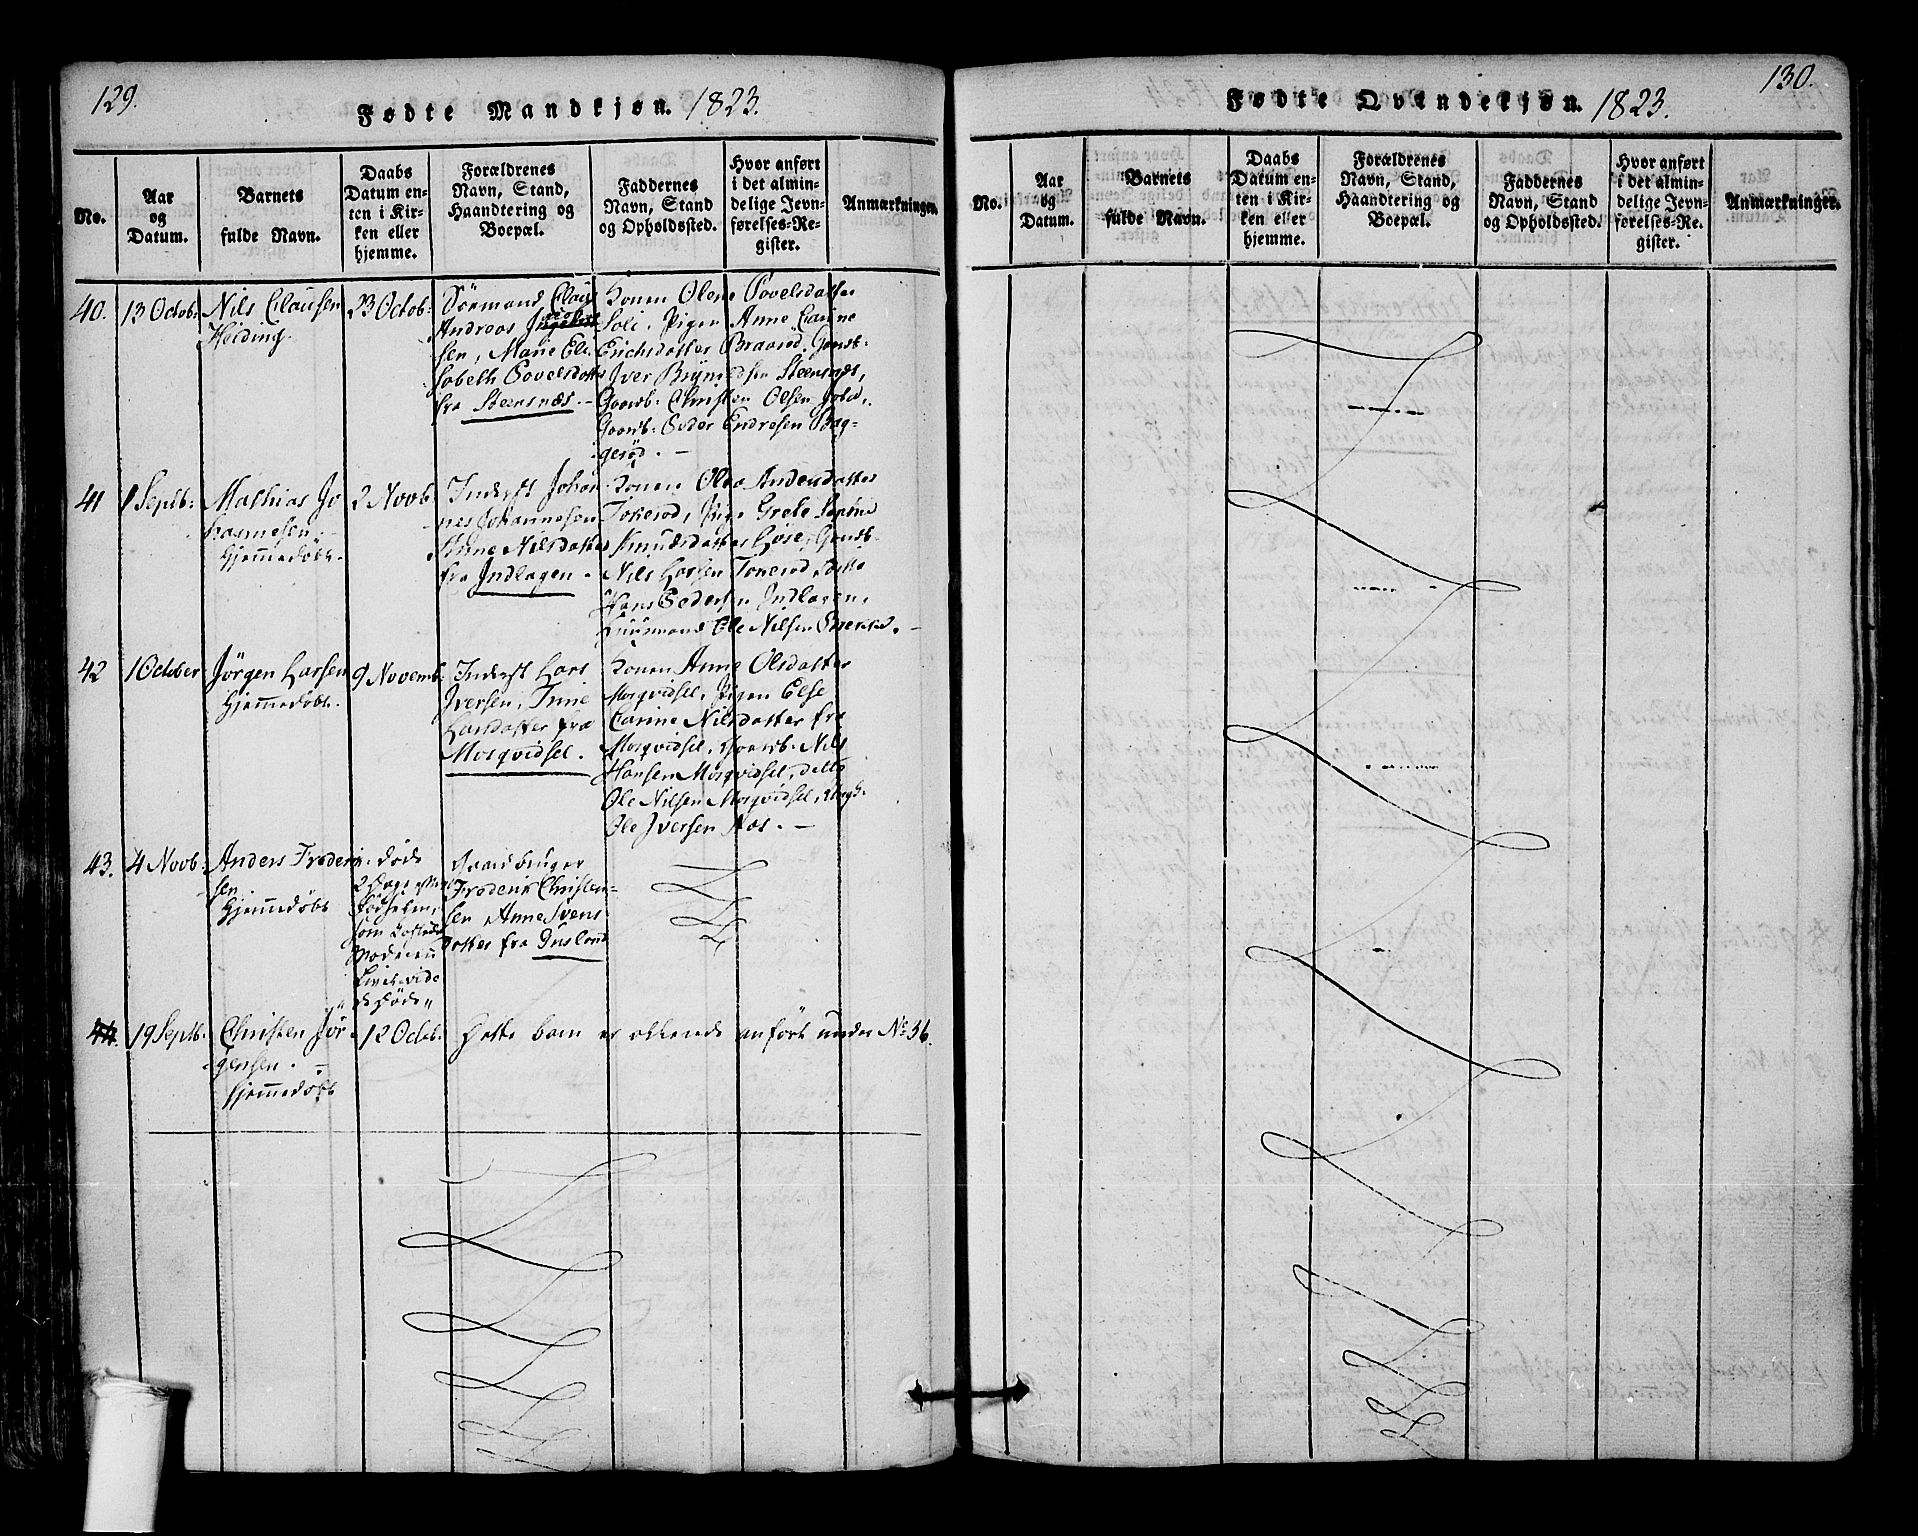 129.
Fødte Mandkjøn. 1823.
No.
Aar
og
Datum.
Barnets
fulde Navn.
Daabs
Datum en-
ten i Kir-
ken eller
hjemme.
Forældrenes
Navn, Stand,
Haandtering og
Boepæl.
Faddernes
Navn, Stand
og Opholdssted.
Hvor anført
i det almin-
delige Jevn-
førelses-Re-
gister.
Anmærkninger.
40.
13 Octob:
Nils Clausen
Heiding.
23 Octob:
Sörmand Claus
Andreas
sen, Marie Eli-
sabeth Povelsdatter
fra Steensnæs. -
Konen Olene Povelsdatter
Soli, Pigen Anne Carine
Erichsdatter Braarød, Gaardb:
Iver Brynildsen Steensnæs,
Gaardb: Christen Olsen
Gaardb: Peder Endresen Bag-
gerød. -
41
1 Septb:
Mathias Jo
hannesen. -
Hjemmedøbt.
2 Novb:
Inderst Johan
nes Johannesen
Anne Nilsdatter
fra Indlagen.
Konen Olea Andersdatter
Tokerød, Pige Grete
Knudsdatter Gaardb:
Nils Larsen Tokerød, ditto
Hans Pedersen Indlagen,
Huusmand Ole Nilsen
42
1 October
Jörgen Larsen
Hjemmedøbt.
9 Novemb:
Inderst Lars
Iversen, Anne
Larsdatter fra
Morqvidsel.
Konen Anne Olsdatter
Morqvidsel, Pigen Else
Carine Nilsdatter fra
Morqvidsel, Gaardb: Nils
Hansen Morqvidsel, ditto
Ole Nilsen Morqvidsel, Ungk:
Ole Iversen Næs. -
43.
4 Novb:
Anders Frederik
sen
Hjemmedøbt
döde
2 Dage efter
Födselen,
som
Moderen
Döde
Gaardbruger
Frederik Christen-
sen Anne Svens
datter fra
44.
19 Septb:
Christen Jör
gensen. -
Hjemmedøbt
12 Octob:
Dette barn er allerede anfört under No 36.
130.
Fødte Qvindekjøn. 1823.
No.
Aar
og
Datum.
Barnets
fulde Navn.
Daabs
Datum en-
ten i Kir-
ken eller
hjemme.
Forældrenes
Navn, Stand,
Haandtering og
Boepæl.
Faddernes
Navn, Stand
og Opholdssted.
Hvor anført
i det almin-
delige Jevn-
førelses-Re-
gister.
Anmærkninger.